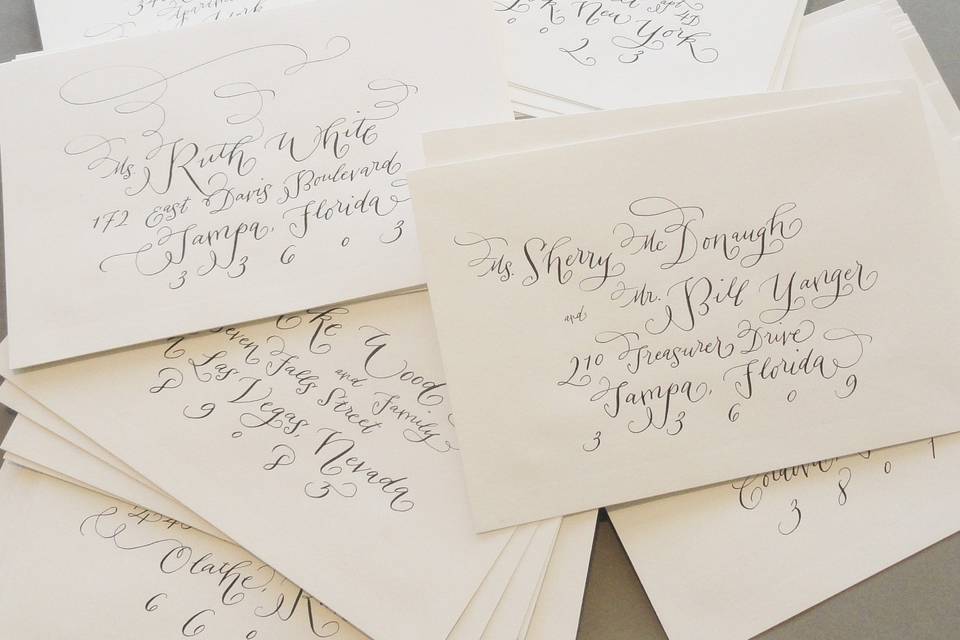 New York
0 2 3
Ms. Ruth White
172 East Davis Boulevard
Tampa, Florida
3 3 6 0 3
Ms. Sherry McDonaugh
and Mr. Bill Yanger
210 Treasurer Drive
Tampa, Florida
3 3 6 0 9
Wood
and Family
Seven Falls Street
Las Vegas, Nevada
8 9 0 8 5
Olathe,
6 6 0
3 8 0 1